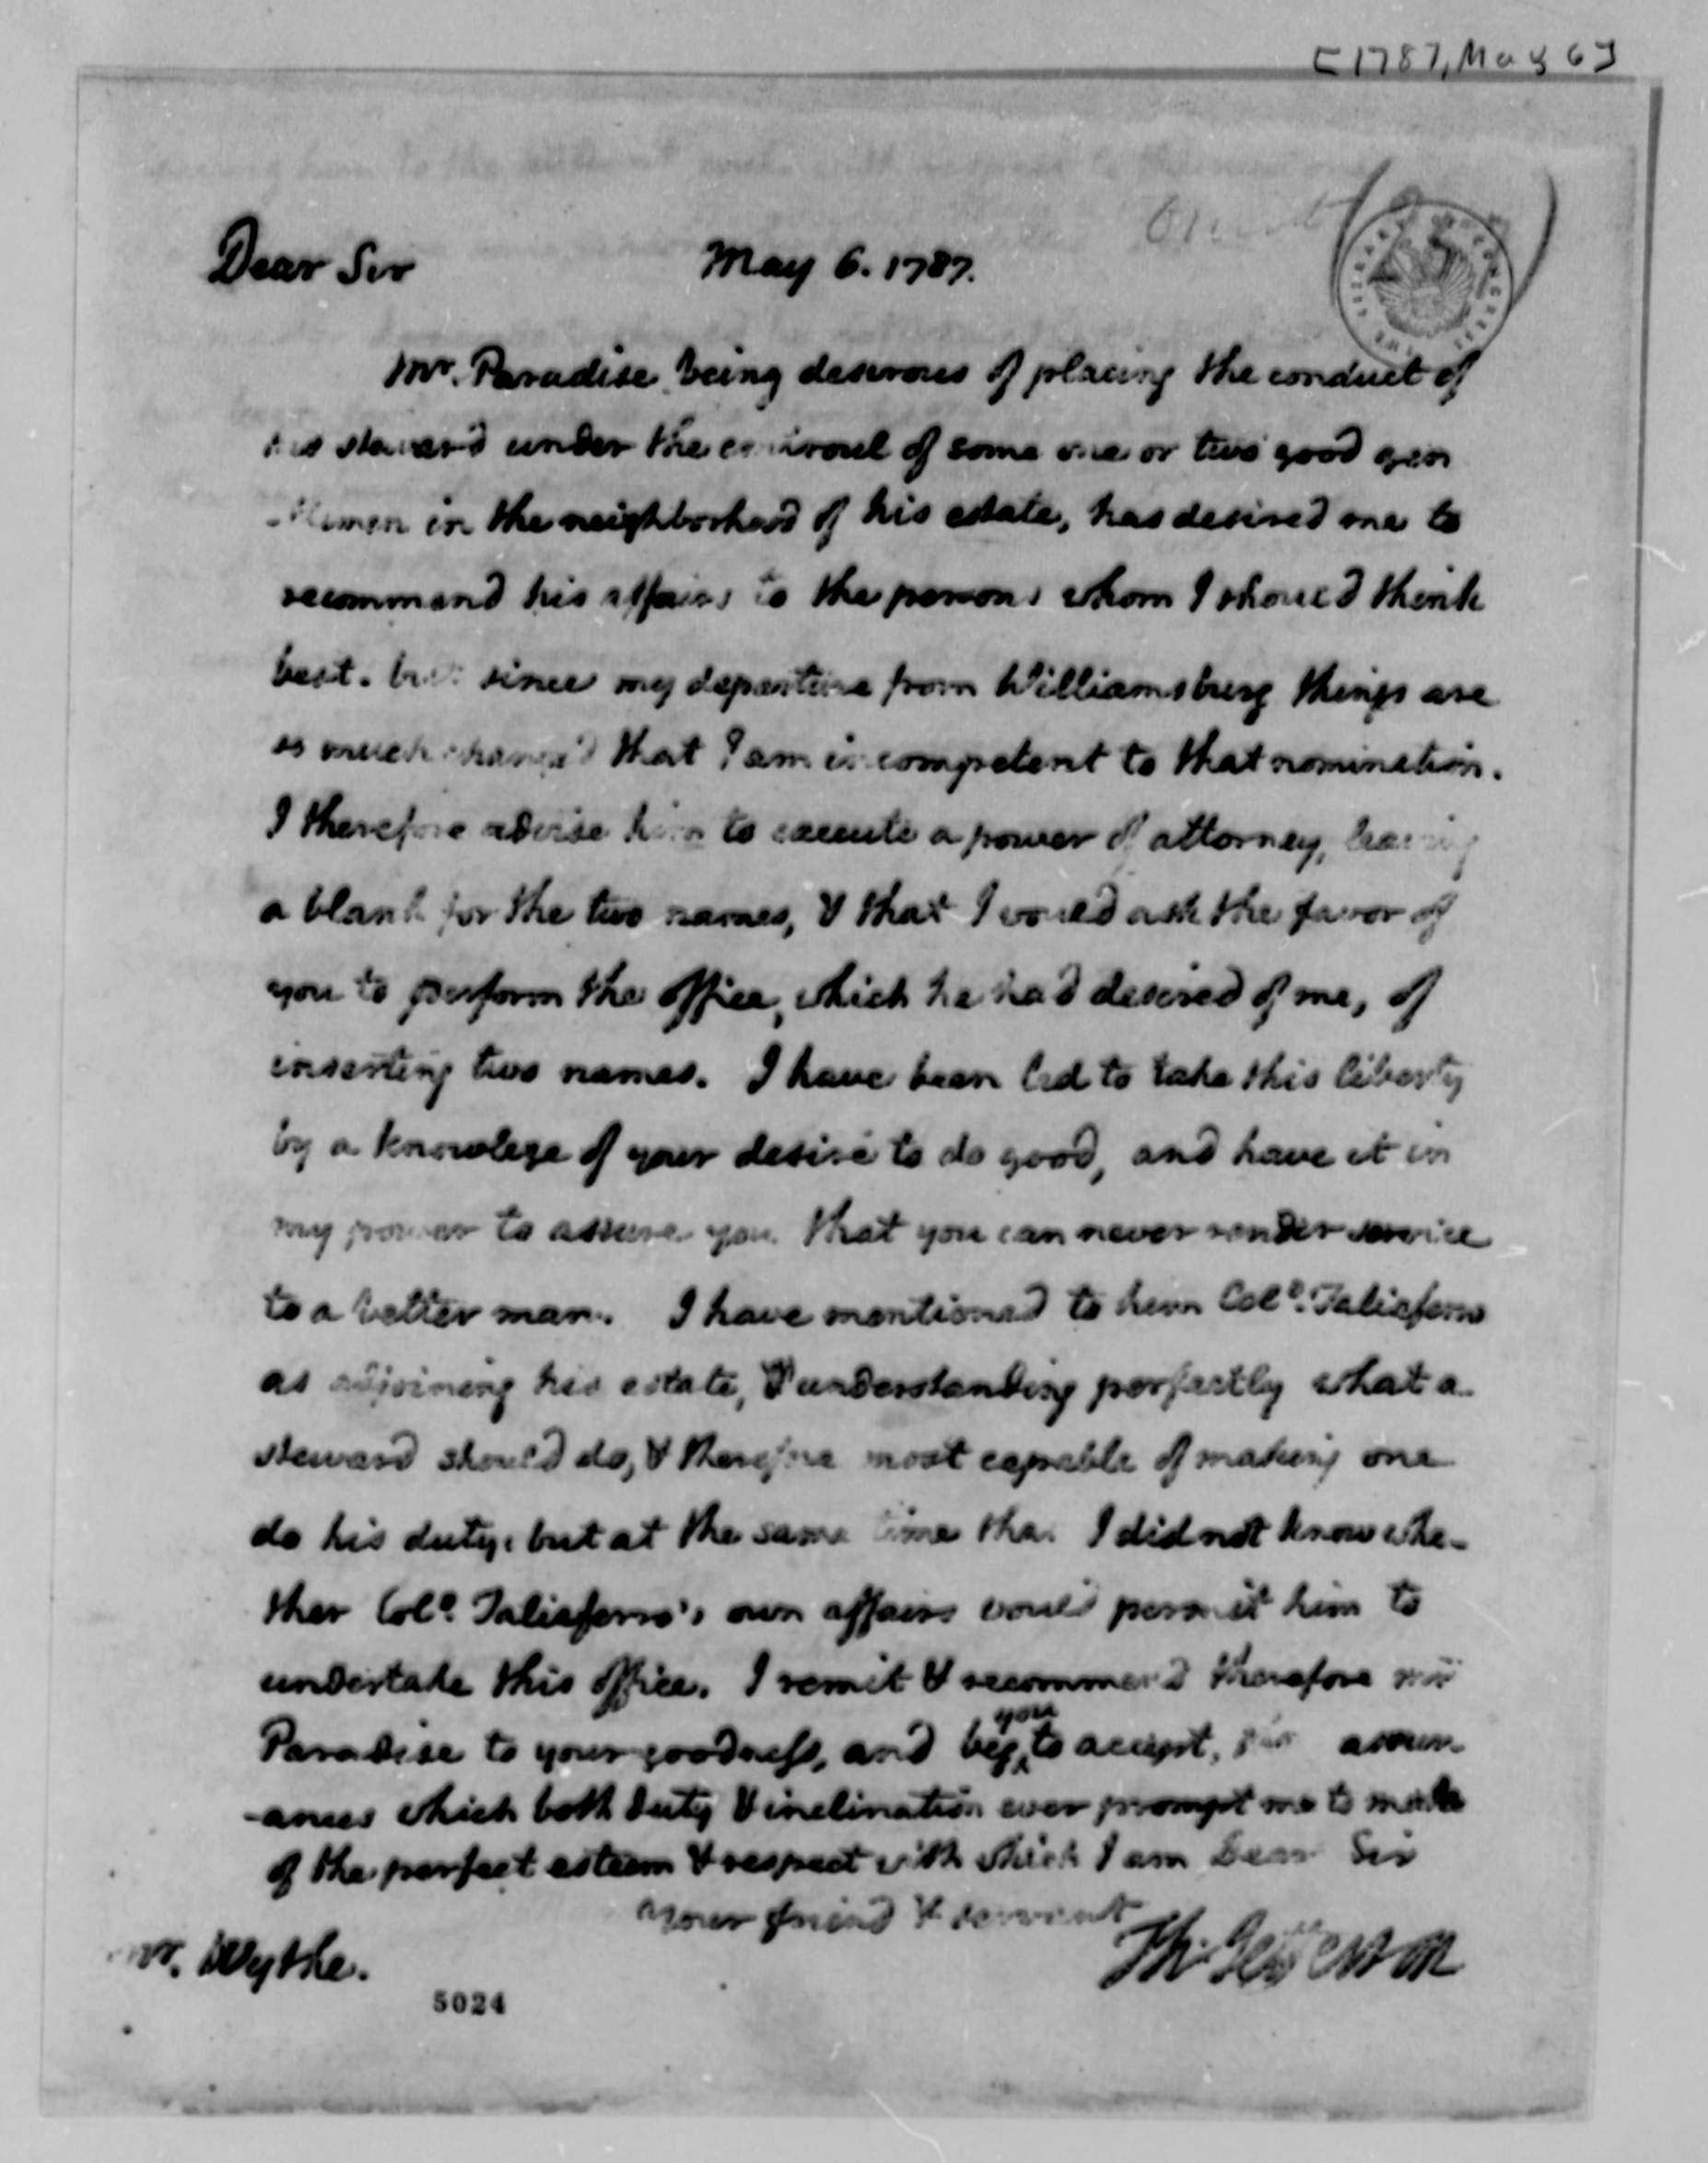 [1787, May 6]
Dear Sir May 6. 1787.
Mr. Paradise being desirous of placing the conduct of
his steward under the controul of some one or two good gen
-tlemen in the neighborhood of his estate, has desired me to
recommend his affairs to the persons whom I should think
best. but since my departure from Williamsburg things are
so much changed that I am incompetent to that nomination.
I therefore advise him to execute a power of attorney, leaving
a blank for the two names, & that I would ask the favor of
you to perform the office, which he had desired of me, of
inserting two names. I have been led to take this liberty
by a knowlege of your desire to do good, and have it in
my power to assure you that you can never render service
to a better man. I have mentioned to him Colo. Taliaferro
as adjoining his estate, & understanding perfectly what a
steward should do, & therefore most capable of making one
do his duty: but at the same time that I did not know whe-
ther Colo. Taliaferro's own affairs would permit him to
undertake this office. I remit & recommend therefore mr
Paradise to your goodness, and beg you to accept, assur-
-ances which both duty & inclination ever prompt me to make
of the perfect esteem & respect with which I am Dear Sir
your friend & servant
Th: Jefferson
mr. Wythe.
5024